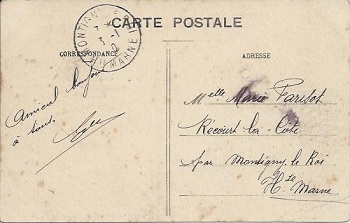 CARTE POSTALE
CORRESPONDANCE
ADRESSE
MONTIGNY
Hte MARNE
Amical bonjour
à tous.
Melle Marie Parisot
Récourt-la-Côte
par Montigny le Roi
Hte Marne